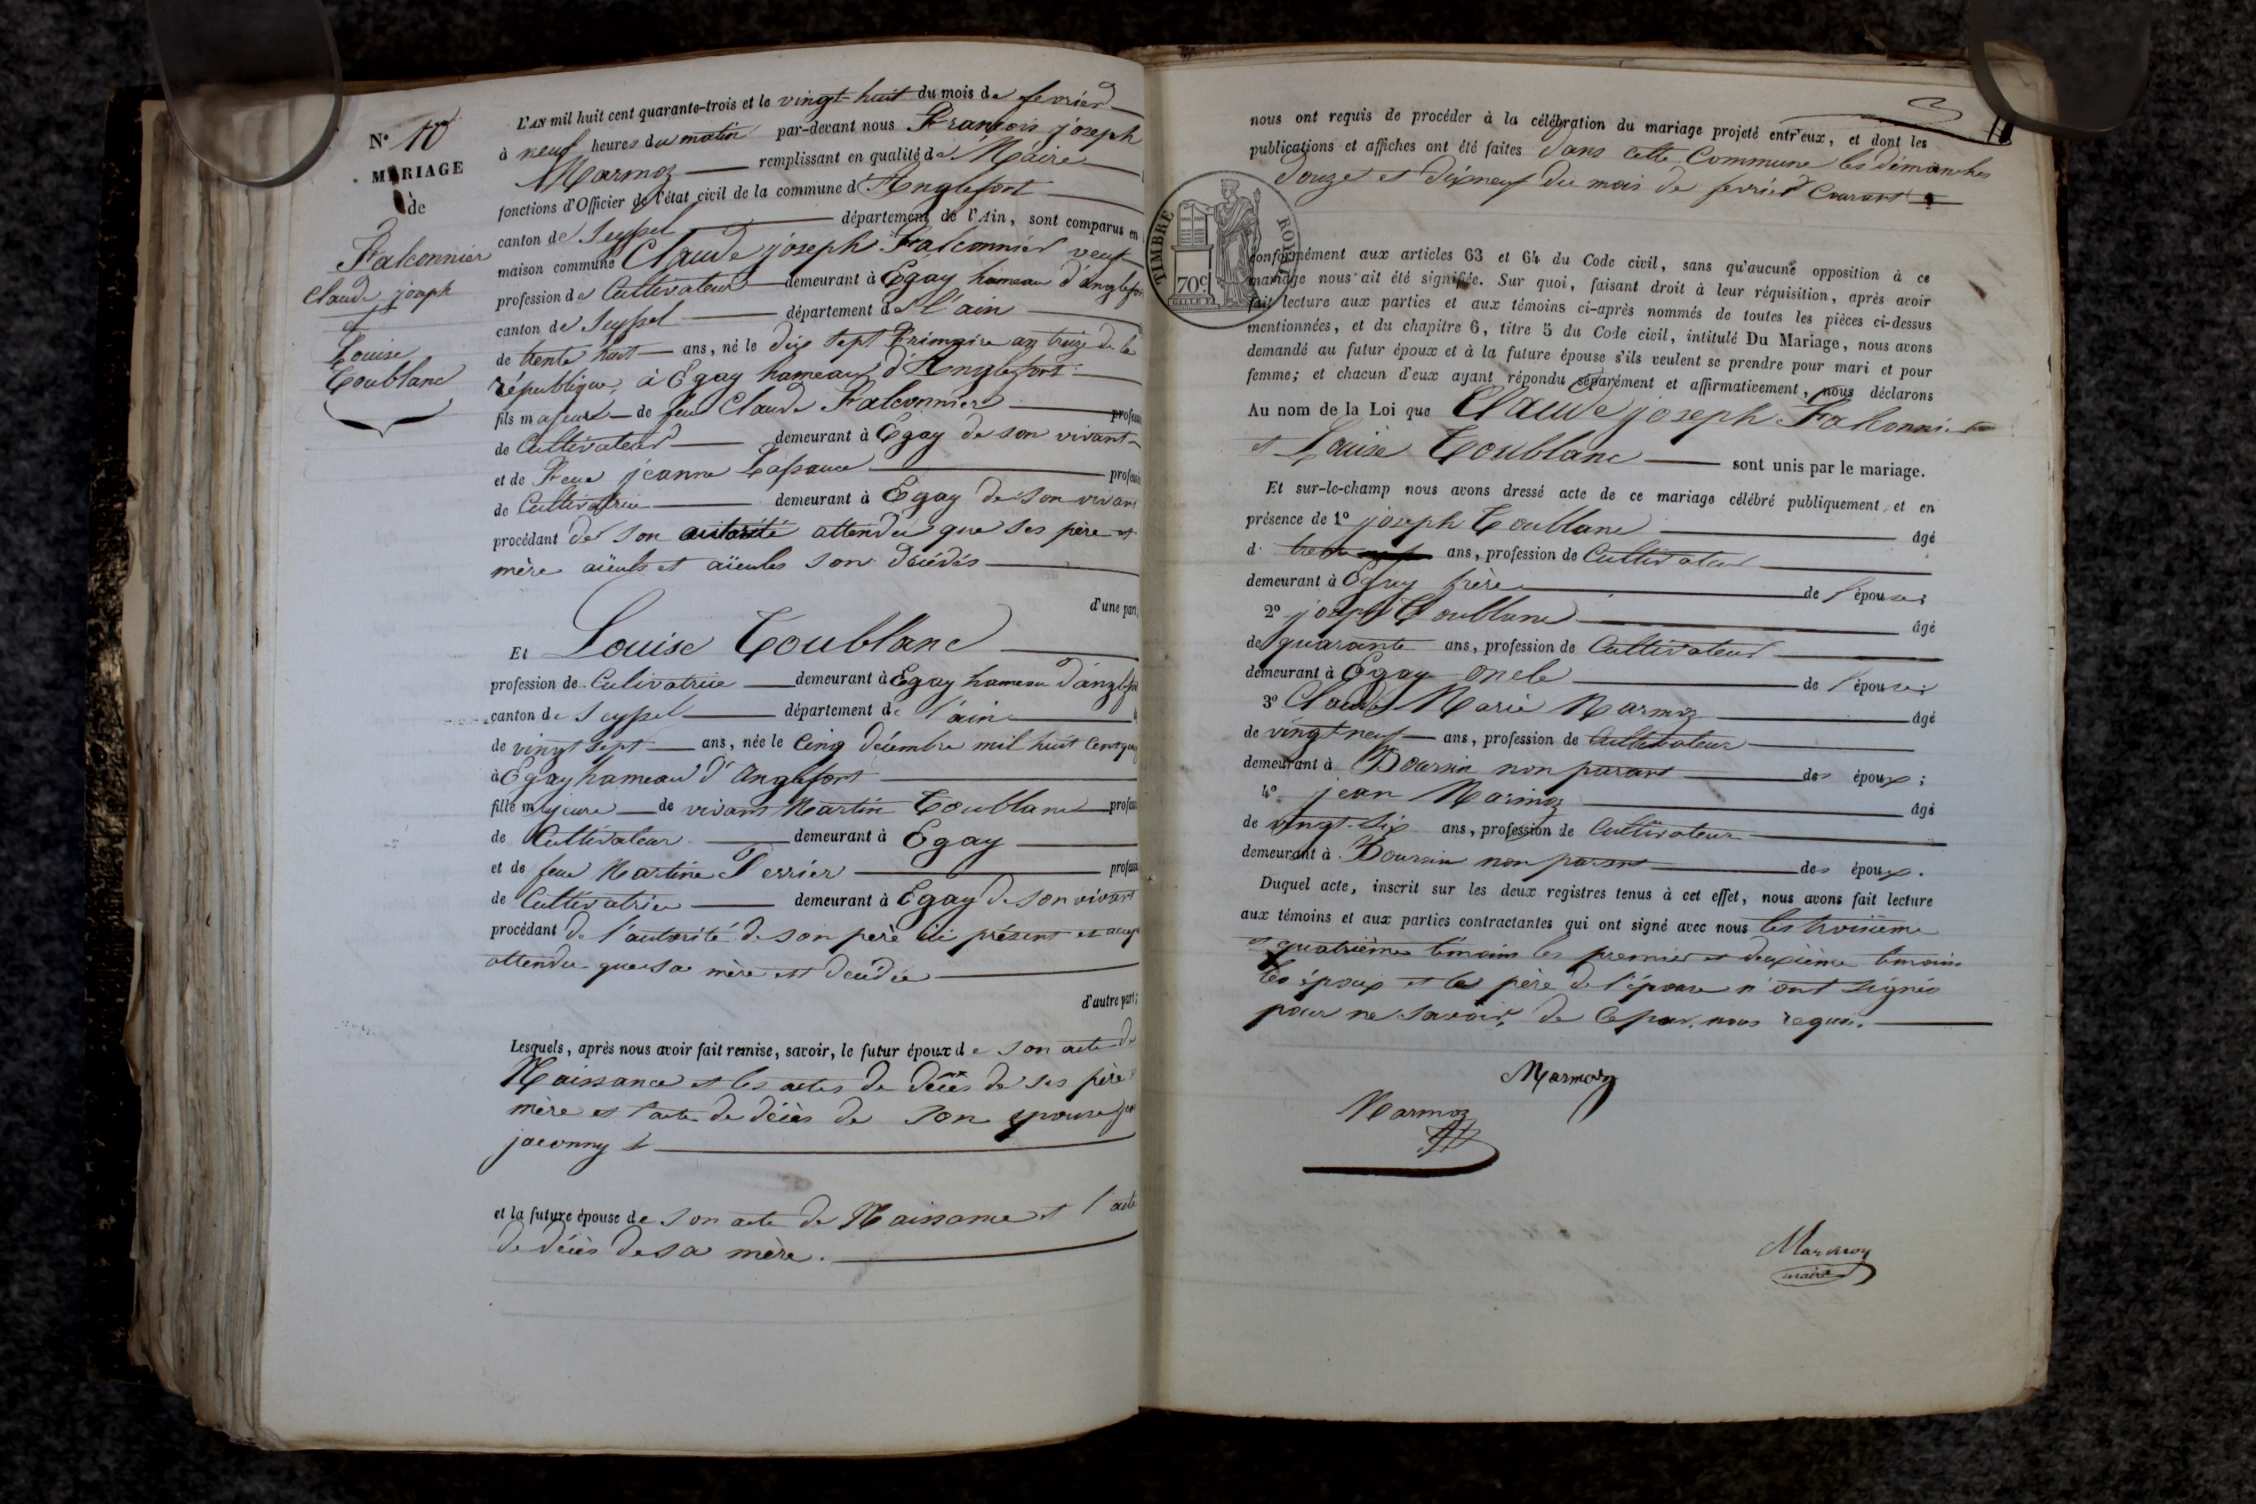 N° 10
MARIAGE
de
Falconnier
Claude joseph
et
Louise
Coublanc
L'AN mil huit cent quarante-trois et le vingt-huit du mois de fevrier
à neuf heures du matin par-devant nous François joseph
Marmoz remplissant en qualité de Maire
fonctions d'Officier de l'état civil de la commune d'Anglefort
canton de Seyssel département de l'Ain, sont comparus en
maison commune Claude joseph Falconnier veuf
profession de Cultivateur demeurant à Egay hameau d'anglefor
canton de Seyssel département de l'ain
de trente huit ans, né le dix sept Frimaire an treize de la
république, à Egay hameau d'Anglefort
fils majeur de feu Claude Falconnier profess
de Cultivateur demeurant à Egay de son vivant
et de Feue jeanne professi
de Cultivatrice demeurant à Egay de son vivant
procédant de son autorité attendu que ses père et
mère aïeuls et aïeules son décédés
d'une part,
Et Louise Coublanc
profession de Culivatrice demeurant à Egay hameau d'anglefort
canton de Seyssel département de l'ain
de vingt sept ans, née le Cinq décembre mil huit Cent quin
à Egay hameau d'Anglefort
fille majeure de vivant Martin Coublanc profess
de Cultivateur demeurant à Egay
et de feue Martine Perrier profess
de Cultivatrice demeurant à Egay de son vivant
procédant de l'autorité de son père ici présent et
attendu que sa mère est décédée
d'autre part;
Lesquels, après nous avoir fait remise, savoir, le futur époux de son acte de
Naissance et les actes de décès de ses père
mère et l'acte de décès de son epouse
et la future épouse de son acte de Naissance et l'acte
de décès de sa mère.
nous ont requis de procéder à la célébration du mariage projeté entr'eux, et dont les
publications et affiches ont été faites dans cette Commune les dimanches
douze et dixneuf du mois de fevrier Courant
TIMBRE ROYAL
70c
conformément aux articles 63 et 64 du Code civil, sans qu'aucune opposition à ce
mariage nous ait été signifiée. Sur quoi, faisant droit à leur réquisition, après avoir
fait lecture aux parties et aux témoins ci-après nommés de toutes les pièces ci-dessus
mentionnées, et du chapitre 6, titre 5 du Code civil, intitulé Du Mariage, nous avons
demandé au futur époux et à la future épouse s'ils veulent se prendre pour mari et pour
femme; et chacun d'eux ayant répondu séparément et affirmativement, nous déclarons
Au nom de la Loi que Claude joseph Falconnier
et Louise Coublanc sont unis par le mariage.
Et sur-le-champ nous avons dressé acte de ce mariage célébré publiquement, et en
présence de 1° joseph Coublanc âgé
d trente ans, profession de Cultivateur
demeurant à Egay frère de l'épouse;
2° joseph Coublanc âgé
de quarante ans, profession de Cultivateur
demeurant à Egay oncle de l'épouse;
3° Claude Marie Marmoz âgé
de vingt neuf ans, profession de Cultivateur
demeurant à Boursin non parant des époux;
4° jean Marmoz âgé
de vingt-six ans, profession de Cultivateur
demeurant à Boursin non parant des époux.
Duquel acte, inscrit sur les deux registres tenus à cet effet, nous avons fait lecture
aux témoins et aux parties contractantes qui ont signé avec nous les troisième
et quatrième témoins les premier et deuxième témoins
Les époux et le père de l'épouse n'ont signés
pour ne savoir, de ce par nous requis.
Marmoz
Marmoz
Marmoz
maire